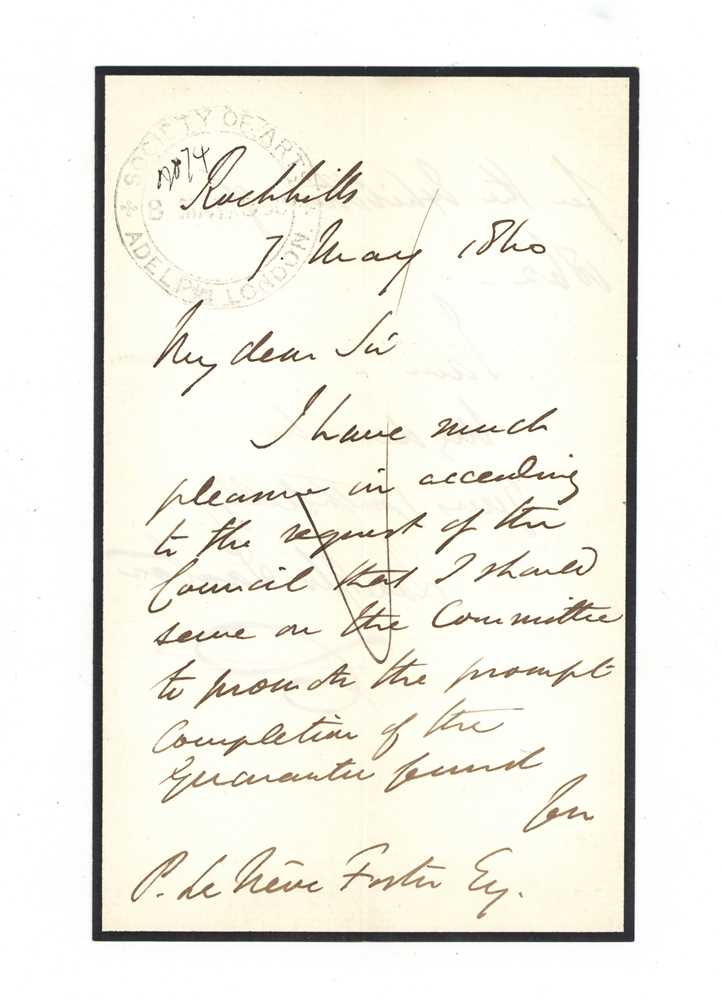 SOCIETY OF ARTS
ADELPHI LONDON
Rockhills
7. May 1860
My dear Sir
I have much
pleasure in acceeding
to the request of the
Council that I should
serve on the Committee
to promote the prompt
completion of the
Guarantee fund
for
P. Le Neve Foster Esq.